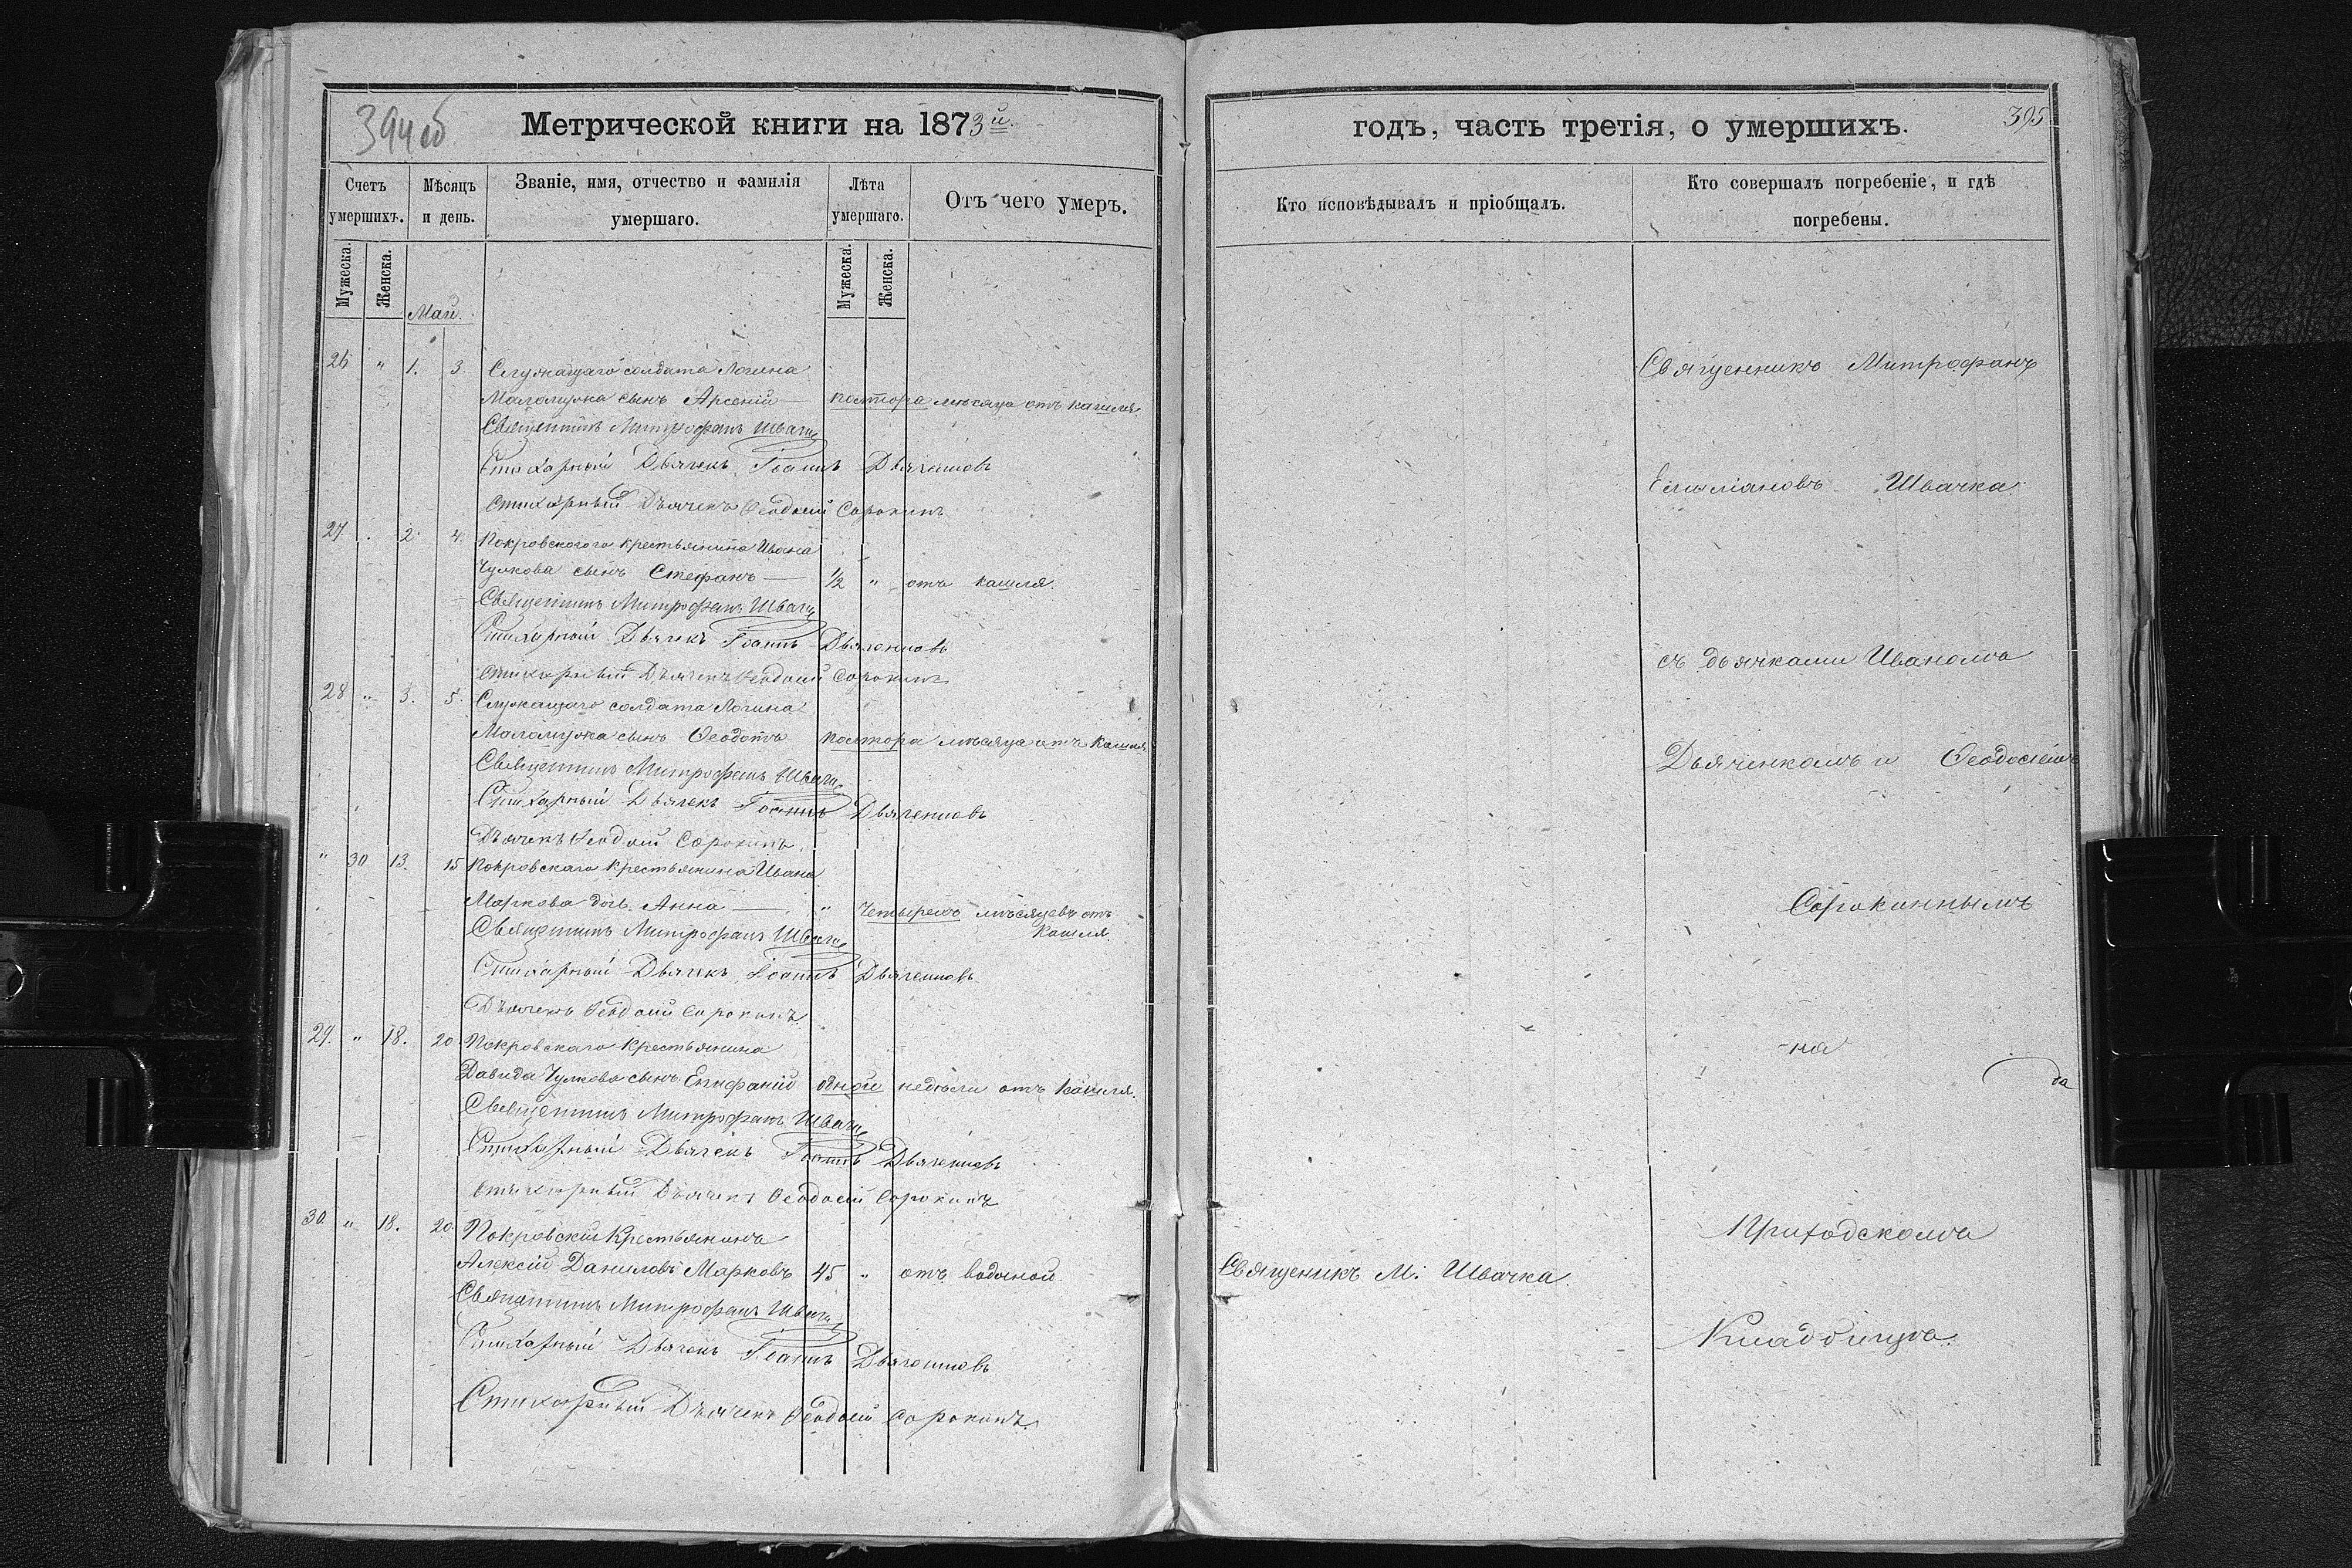 394 об
Метрической книги на 1873 й.
Счетъ умершихъ.
Мѣсяцъ и день.
Званіе, имя, отчество и фамилія умершаго.
Лѣта умершаго.
Отъ чего умеръ.
Мужеска.
Женска.
Мужеска.
Женска.
Май.
26 " 1. 3 Служащаго солдата Логина
сынъ Арсеній — полтора мѣсяца отъ кашля
Священникъ Митрофанъ Швачка
Стихарный Дьячекъ Іоаннъ Дьяченковъ
Стихарный Дьячекъ Ѳеодосій Сорокинъ
27 . 2. 4. Покровского крестьянина Ивана
Чулкова сынъ Стефанъ — 1/2 " отъ кашля.
Священникъ Митрофанъ Швачка
Стихарный Дьячекъ Іоаннъ Дьяченковъ
Стихарный Дьячекъ Ѳеодосій Сорокинъ
28 " 3. 5. Служащаго солдата Логина
сынъ Ѳеодотъ полтора мѣсяца отъ кашля
Священникъ Митрофанъ Швачка
Стихарный Дьячекъ Іоаннъ Дьяченковъ
Дьячекъ Ѳеодосій Сорокинъ
" 30 13. 15 Покровскаго крестьянина Ивана
Маркова дочь Анна — " четырехъ мѣсяцевъ отъ
кашля.
Священникъ Митрофанъ Швачка
Стихарный Дьячекъ Іоаннъ Дьяченковъ
Дьячекъ Ѳеодосій Сорокинъ
29. " 18. 20 Покровскаго крестьянина
Давида Чулкова сынъ Епифаній одной недѣли отъ кашля.
Священникъ Митрофанъ Швачка
Стихарный Дьячекъ Іоаннъ Дьяченковъ
Стихарный Дьячекъ Ѳеодосій Сорокинъ
30 " 18. 20 Покровскій Крестьянинъ
Алексій Даниловъ Марковъ 45 " отъ водяной
Священникъ Митрофанъ Швачка
Стихарный Дьячекъ Іоаннъ Дьяченковъ
Стихарный Дьячекъ Ѳеодосій Сорокинъ
годъ, часть третія, о умершихъ.
395
Кто исповѣдывалъ и пріобщалъ.
Кто совершалъ погребеніе, и гдѣ погребены.
Священникъ Митрофанъ
Емиліановъ Швачка
съ дьячками Иваномъ
Дьяченкомъ и Ѳеодосіемъ
Сорокиннымъ
на
Приходскомъ
Священикъ М: Швачка.
Кладбищѣ.